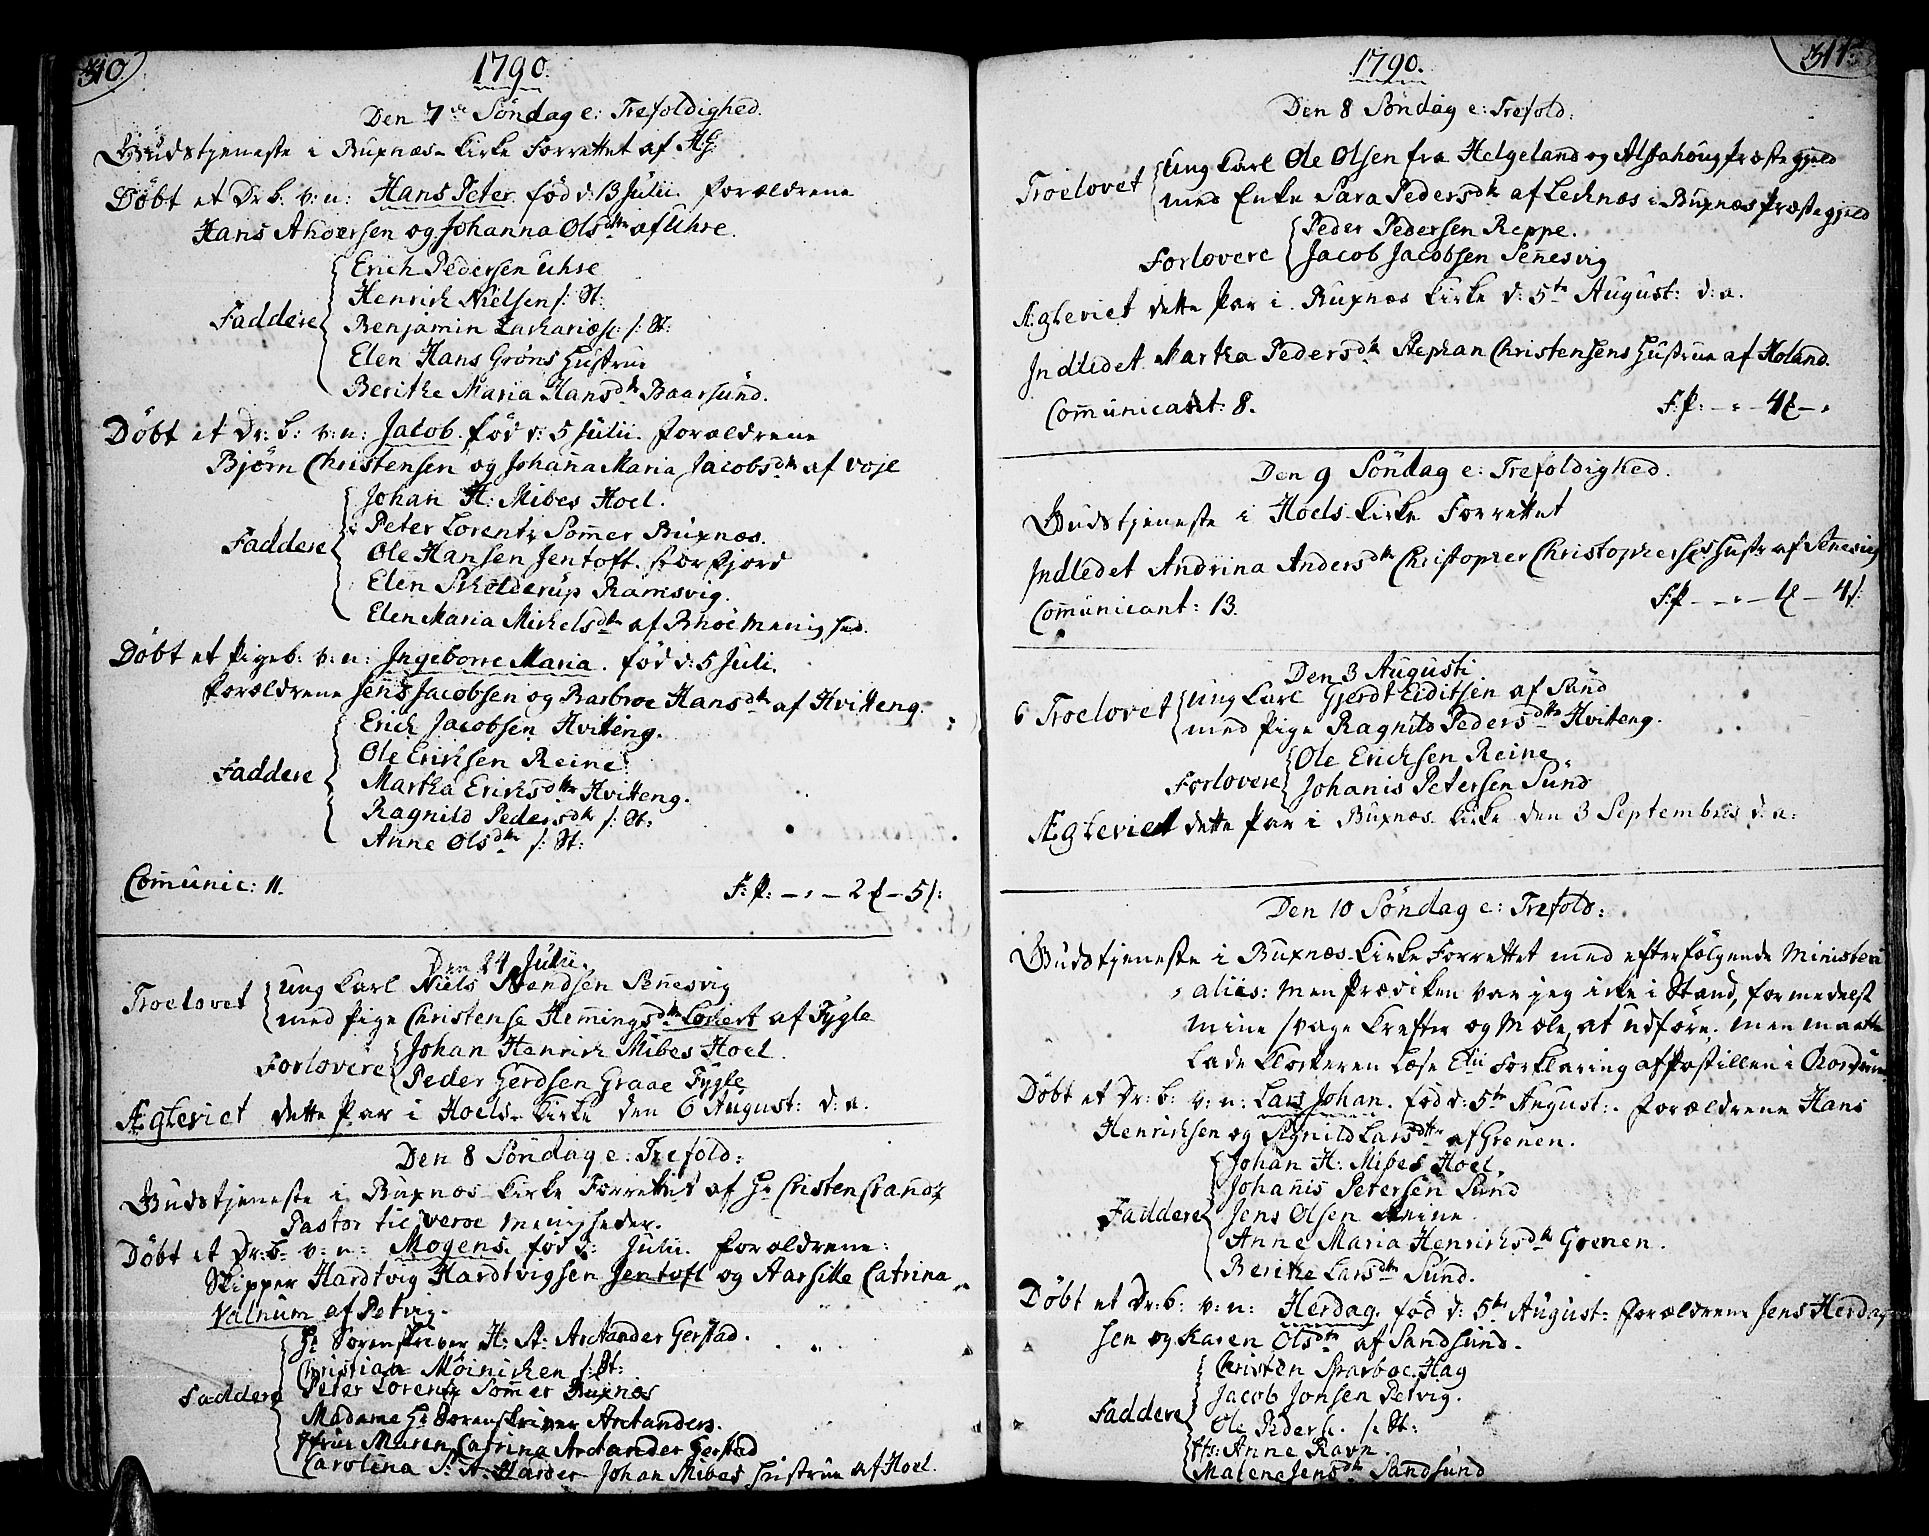 310.
1790.
Den 7de Söndag e: Trefoldighed.
Gudstjeneste i Buxnæs Kirke Forrettet af H.G:
Döbt et Dr: b. v: n: Hans Peter. föd d: 13 Julii. Forældrene
Hans Andersen og Johanna Olsdttr af Uhre.
Erich Pedersen Uhre
Henrich Nielsen /: St:
Faddere
Benjamin Zachariæs: /: St:
Elen Hans Gröns Hustrue
Berithe Maria Hansdtr Baarsund.
Döbt et Dr: b: v: n: Jacob. föd d: 5 Julii. Forældrene
Björn Christensen og Johanna Maria Jacobsdtr af Voje
Johan H: Mibes Hoel.
Peter Lorentz Sommer Buxnæs.
Faddere
Ole Hansen Jentoft. Storfjord
Elen Skielderup Ramsvig.
Elen Maria Michelsdtr af Bnöe Menighed.
Döbt et Pigeb: v: n: Ingeborre Maria. föd d: 5 Juli.
Forældrene Jens Jacobsen og Barbroe Hansdtr af Hvitteng.
Erich Jacobsen Hvitteng.
Ole Erichsen Reine
Faddere
Martha Erichsdttr Hvitteng.
Ragnild Pedersdtr /: St:
Anne Olsdtr /: St:
Comunic: 11.
F: P: – " – 2 ℔ – 5 /:
Den 24 Julii.
Troelovet
Ung Karl Niels Svendsen Sennesvig
med Pige Christense Hemmingsdtr Lockert af Fygle
Forlovere
Johan Henrich Mibes Hoel.
Peder Gerdsen Graae Fygle
Ægteviet dette Par i Hoels Kirke den 6 August: d: a.
Den 8 Söndag e: Trefold:
Gudstjeneste i Buxnæs Kirke Forrettet af Hr Cristen Cranoz
Pastor til Veröe Menigheder.
Döbt et Dr: b: v: n: Mogens. föd d: Julii. Forældrene:
Skipper Hardtvig Hardtvigsen Jentoft og Aarsille Catrina
Valnum af Petvig.
Hr Sorenskriver H: St: Arctander Gerstad.
Christian Möinichen /: St:
Faddere
Peter Lorentz Sommer Buxnæs
Madame Hr Sorenskriver Arctanders.
Jfrue Maren Catrina Arctander Gerstad
Carolina S: A: Harder Johan Mibes Hustrue af Hoel.
311.
1790.
Den 8 Söndag e: Trefold:
Troelovet
Ung Karl Ole Olsen fra Helgeland og Alstahoug Præstegjeld
med Enke Sara Pedersdtr af Lechnæs i Buxnæs Præstegjeld
Forlovere
Peder Pedersen Reppe.
Jacob Jacobsen Sennesvig
Ægteviet dette Par i Buxnæs Kirke d: 5te August: d: a.
Indledet Martha Pedersdtr Stephan Christensens Hustrue af Holand.
Communicant: 8.
F: P: – " – 4 ℔ – "
Den 9 Söndag e: Trefoldighed.
Gudstjeneste i Hoels Kirke Forrettet
Indledet Andrina Andersdtr Christopher Christophersens Hustr af Sennesvig
Communicant: 13.
F: P – – " – 1 ℔ – 4 /:
Den 3 Augusti
6 Troelovet
Ung Karl Gjerdt Eiditsen af Sund
med Pige Ragnild Pedersdttr Hvitteng.
Forlovere
Ole Erichsen Reine
Johanis Petersen Sund
Ægteviet dette Par i Buxnæs Kirke den 3 Septembris d: a:
Den 10 Söndag e: Trefold:
Gudstjeneste i Buxnæs Kirke Forrettet med efterfölgende Ministeri
aliis: men Prædiken var jeg icke i Stand, formedelst
mine svage Kræfter og Mæle, at udföre; men maatte
lade Klockeren læse Etii Forklaring af Postillen i Chordören
Döbt et Dr: b: v: n: Lars Johan. föd d: 5te August:. Forældrene Hans
Henrichsen og Signild Larsdttr af Grenen.
Johan H: Mibes Hoel.
Johannis Petersen Sund
Faddere
Jens Olsen Reine
Anne Maria Henrichsdtr Grenen.
Berithe Larsdtr Sund.
Döbt et Dr: b: v: n: Herdag. föd d: 5te August: Forældrene Jens Herdag
sen og Karen Olsdtr af Sandsund.
Christen Sparboe Hag
Jacob Jonsen Petvig.
Faddere
Ole Peders: /: St:
Anne Ravn.
Malene Jensdtr Sandsund